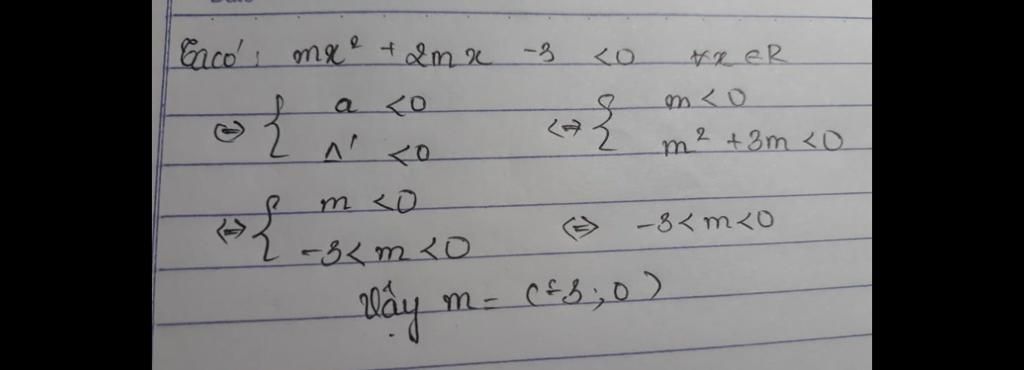 Ta có: mx² + 2mx -3 <0 ∀x ∈R
⇔ { a <0 ⇔ { m <0
Δ' <0 m² +3m <0
⇔ { m <0 ⇔ -3< m <0
-3< m <0
Vậy m = (-3; 0)